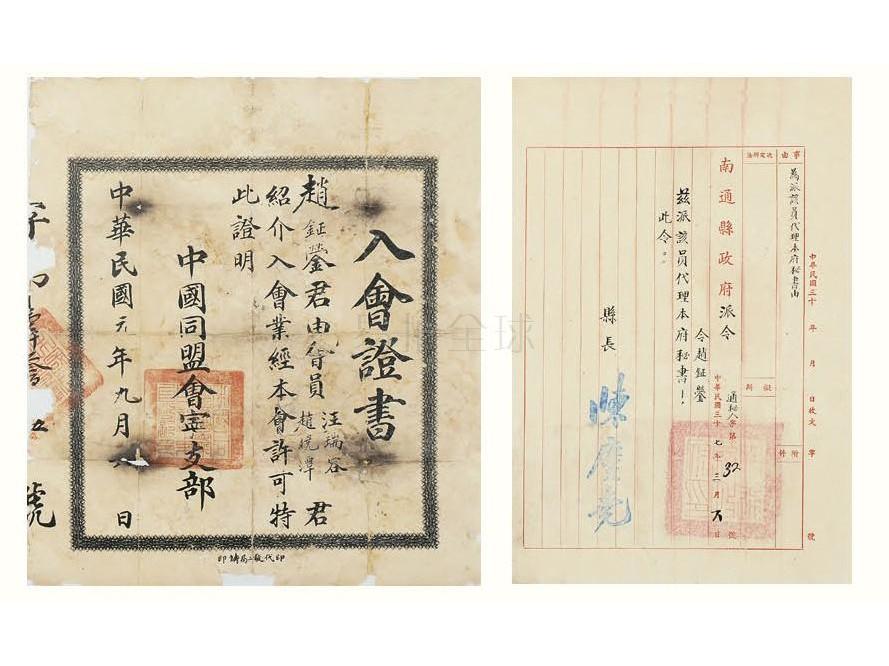 入會證書
趙鉦鎣君由會員汪瑞容趙曉澤君
紹介入會業經本會許可特
此證明
中國同盟會寧支部
中華民國元年九月日
號
事由
為派該員代理本府秘書由
擬辦
附件
中華民國三十年月日收文字號
南通縣政府派令
通秘人字第32號
中華民國三十七年三月日
令趙鉦鎣
茲派該員代理本府秘書。
此令。
縣長
全球